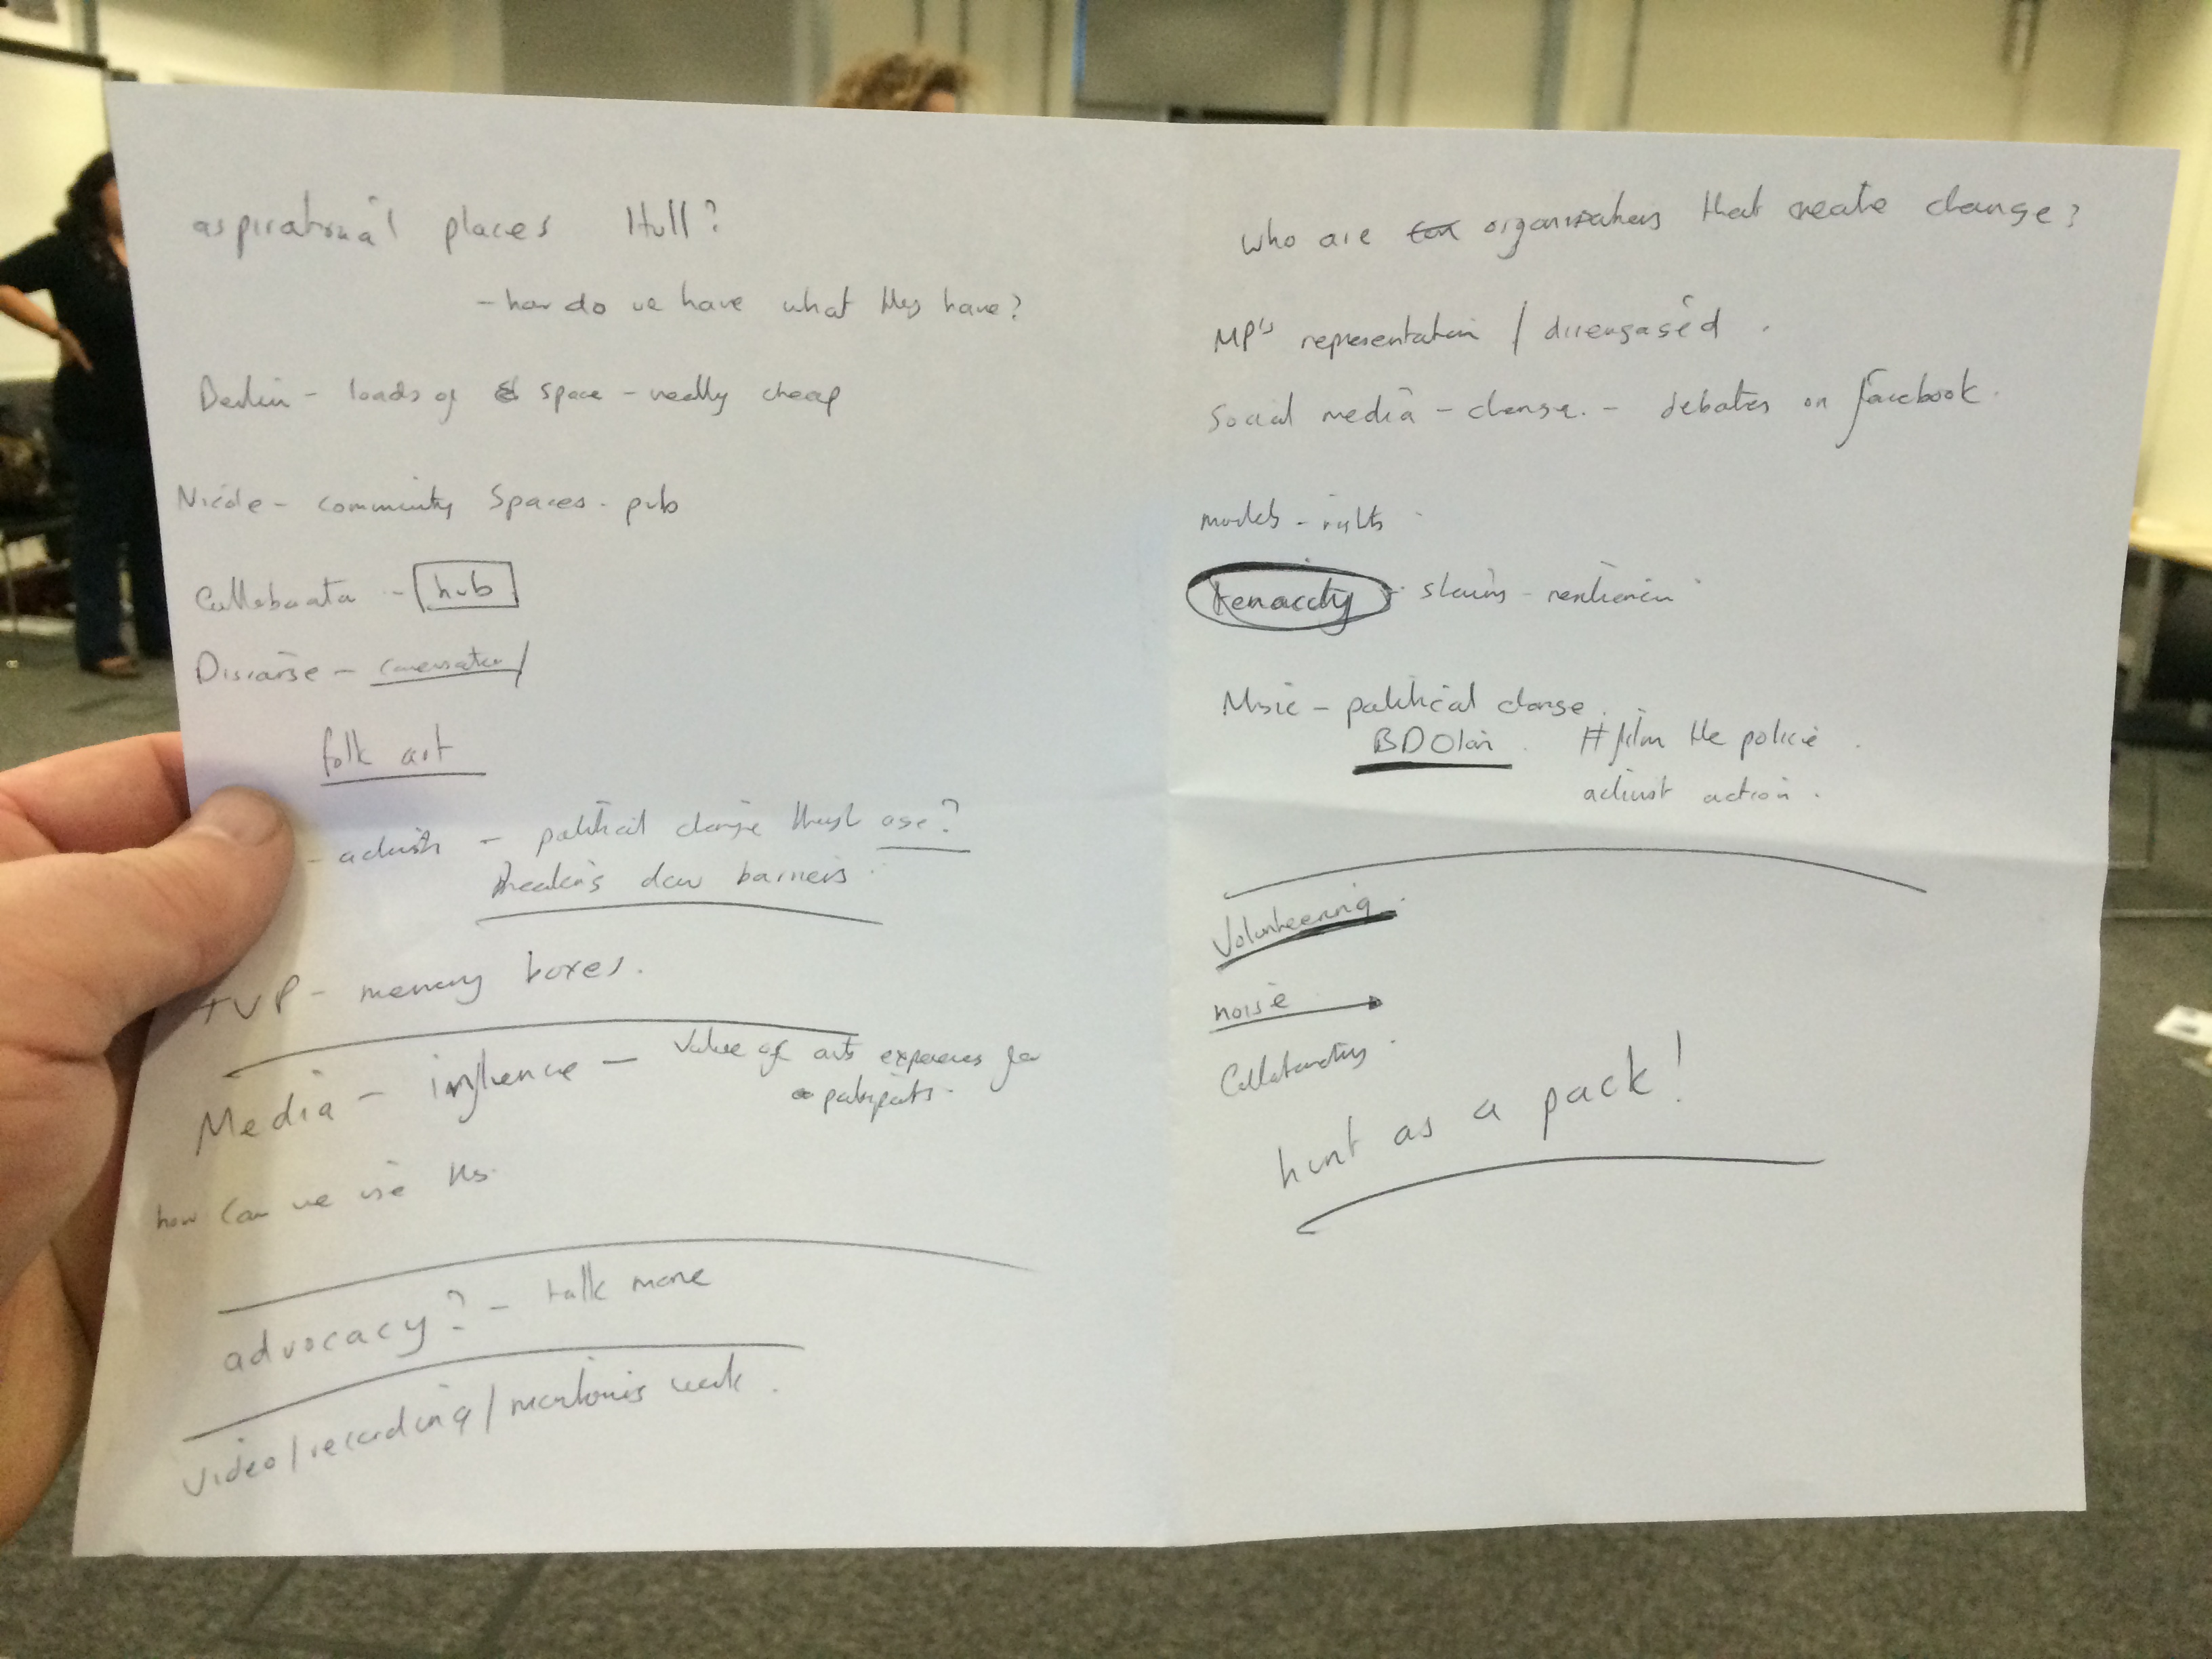 aspirational places Hull?
- how do we have what they have?
loads of space - really cheap
Nicole - community spaces. pub
- hub
Discourse - conversation /
folk art
- activists - political change through
Breaking down barriers.
TVP - memory boxes.
Media - influence - Value of arts experiences for
participants.
how can we use this.
advocacy? - talk more
video / recording / week.
Who are organisations that create change?
MP's representation / disengaged.
Social media - change. - debates on facebook.
models - rights
tenacity -
Music - political change.
BDOlan. # film the police.
activist action.
Volunteering.
noise
Collaborating.
hunt as a pack!